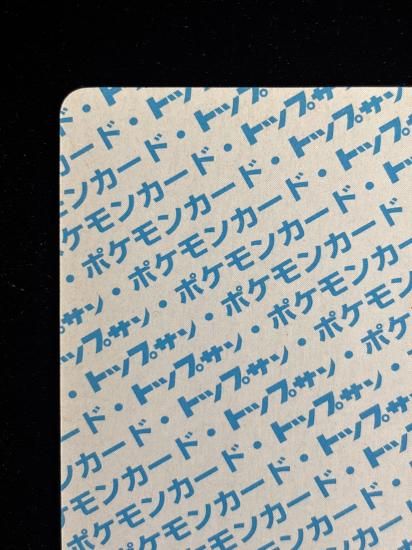 ド・トッ
ード・トップ
ンカード・トップサ
ケモンカード・トップサン
・ポケモンカード・トップサン
サン・ポケモンカード・トップサ
ップサン・ポケモンカード・トッ
トップサン・ポケモンカード・
ド・トップサン・ポケモンカー
カード・トップサン・ポケモン
ンカード・トップサン・ポケ
ポケモンカード・トップサン・
ポケモンカード・トップ
ポケモンカード・